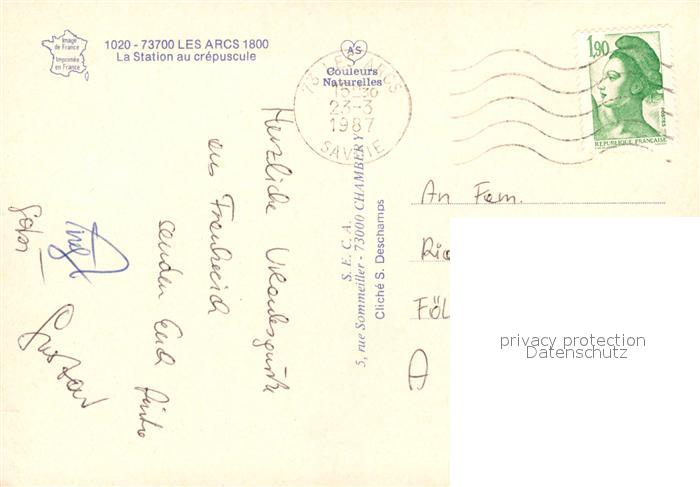 Image de France
Imprimée en France
1020 - 73700 LES ARCS 1800
La Station au crépuscule
AS
Couleurs
Naturelles
73 LES ARCS
23-3
1987
SAVOIE
1,90
POSTES
REPUBLIQUE FRANÇAISE
S. E. C. A.
5, rue Sommeiller - 73000 CHAMBERY
Cliché S. Deschamps
Herzliche Urlaubsgrüße
aus Frankreich
senden Euch
Gustav
An Fam.
FÖL
D
privacy protection
Datenschutz